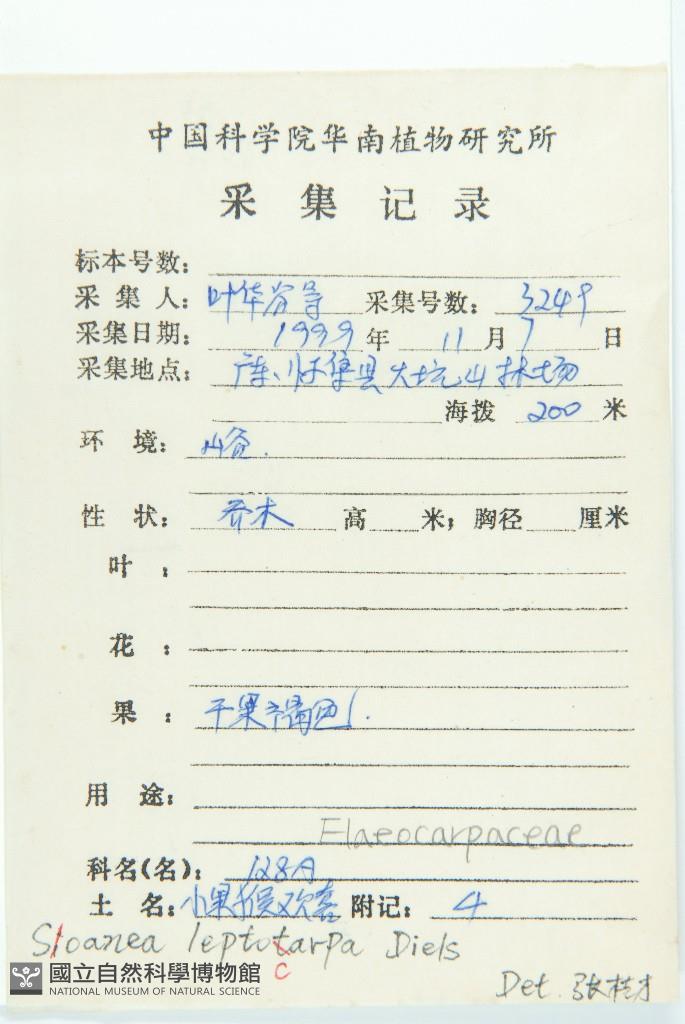 中国科学院华南植物研究所
采集记录
标本号数:
采集人: 叶华谷等 采集号数: 3249
采集日期: 1999年11月7日
采集地点: 广东怀集县大坑山林场
海拨 200 米
环境: 山谷.
性状: 乔木 高 米; 胸径 厘米
叶:
花:
果: 干果褐色.
用途:
Elaeocarpaceae
科名(名): 128A
土名: 小果猴欢喜 附记: 4
Sloanea leptotarpa Diels
c
國立自然科學博物館
NATIONAL MUSEUM OF NATURAL SCIENCE
Det. 张桂才